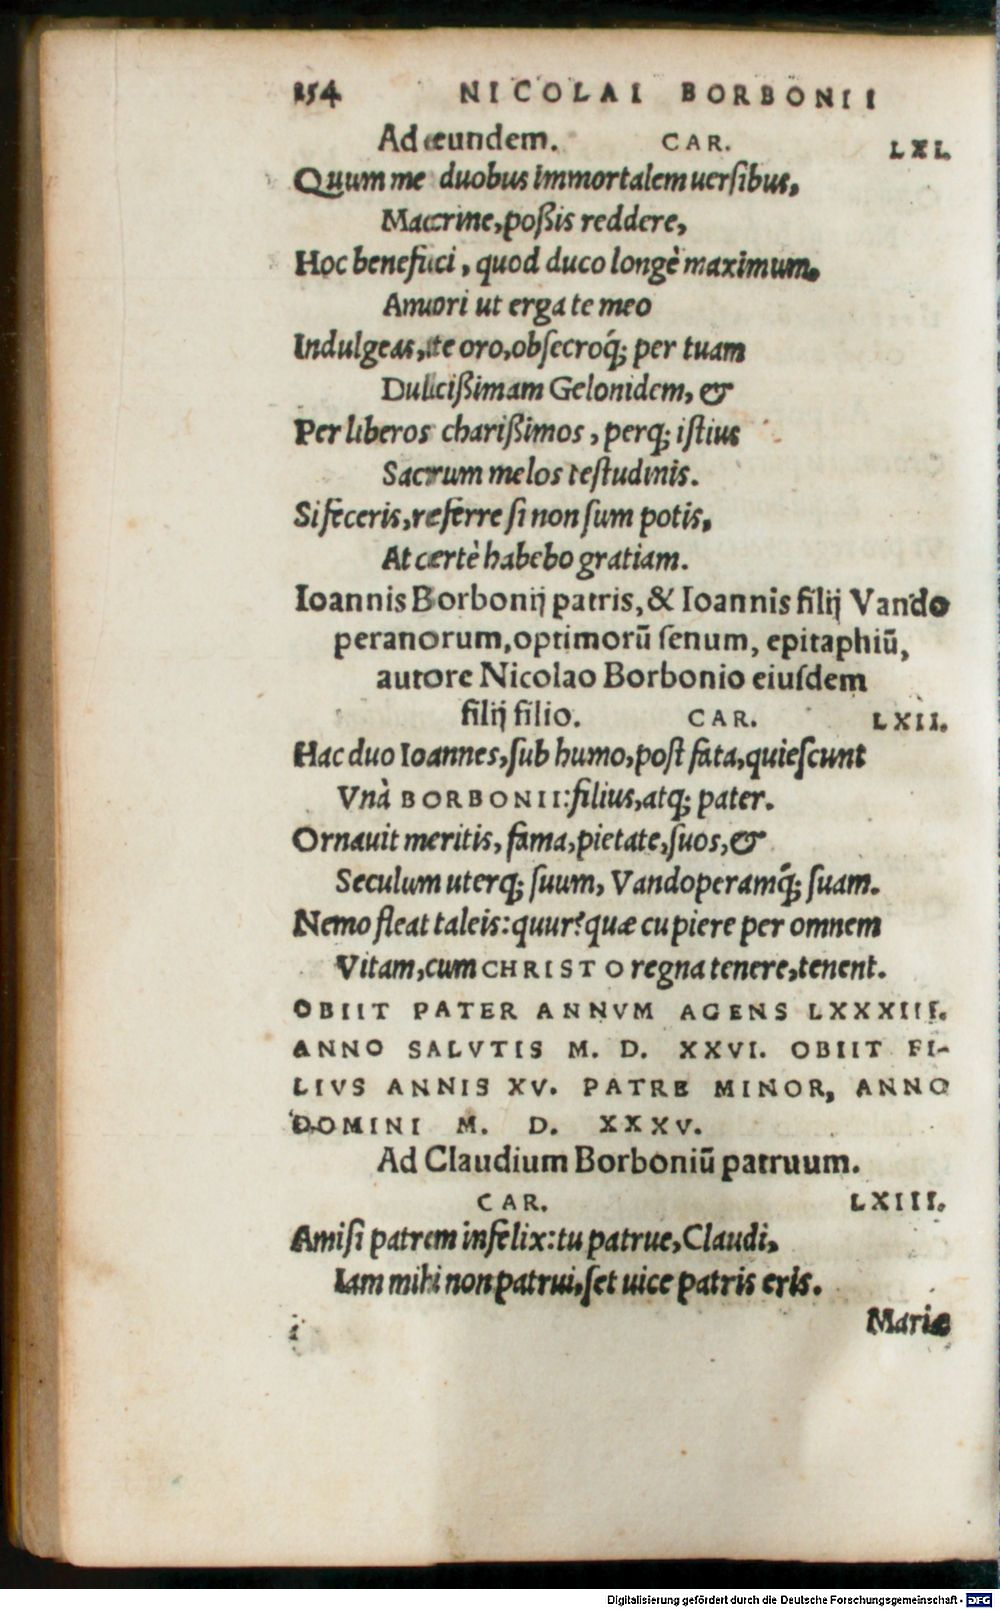 254 NICOLAI BORBONII
Ad eundem. CAR. LXI.
Quum me duobus immortalem uersibus,
Macrine, poßis reddere,
Hoc benefaci, quod duco longè maximum.
Amori ut erga te meo
Indulgeas, te oro, obsecroq́; per tuam
Dulcißimam Gelonidem, &
Per liberos charißimos, perq; istius
Sacrum melos testudinis.
Si feceris, referre si non sum potis,
At certè habebo gratiam.
Ioannis Borbonij patris, & Ioannis filij Vando
peranorum, optimorũ senum, epitaphiũ,
autore Nicolao Borbonio eiusdem
filij filio. CAR. LXII.
Hac duo Ioannes, sub humo, post fata, quiescunt
Vnà BORBONII: filius, atq; pater.
Ornauit meritis, fama, pietate, suos, &
Seculum uterq; suum, Vandoperamq́; suam.
Nemo fleat taleis: quur? quæ cupiere per omnem
Vitam, cum CHRISTO regna tenere, tenent.
OBIIT PATER ANNVM AGENS LXXXIII.
ANNO SALVTIS M. D. XXVI. OBIIT FI-
LIVS ANNIS XV. PATRE MINOR, ANNO
DOMINI M. D. XXXV.
Ad Claudium Borboniũ patruum.
CAR. LXIII.
Amisi patrem infelix: tu patrue, Claudi,
Iam mihi non patrui, set uice patris eris.
Mariæ
Digitalisierung gefördert durch die Deutsche Forschungsgemeinschaft - DFG